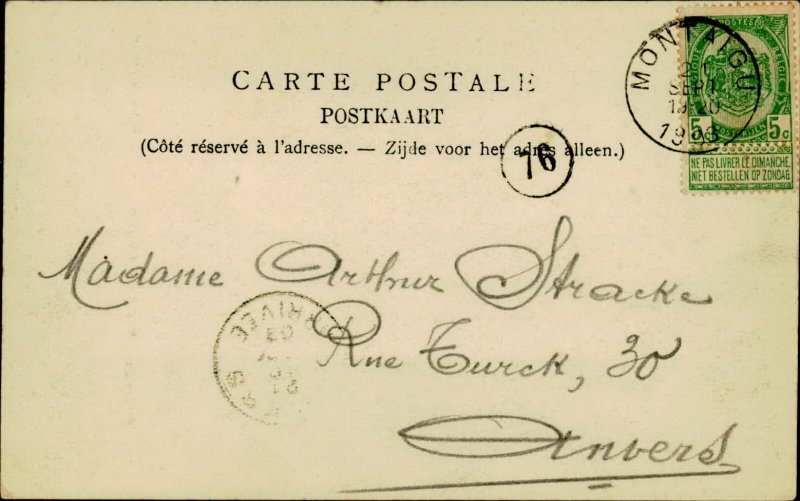 CARTE POSTALE
POSTKAART
(Côté réservé à l'adresse. — Zijde voor het adres alleen.)
76
MONTAIGU
SEPT
POSTES
5 5c
NE PAS LIVRER LE DIMANCHE
NIET BESTELLEN OP ZONDAG
Madame Arthur Stracke
Rue Turck, 30
Anvers
ARRIVEE